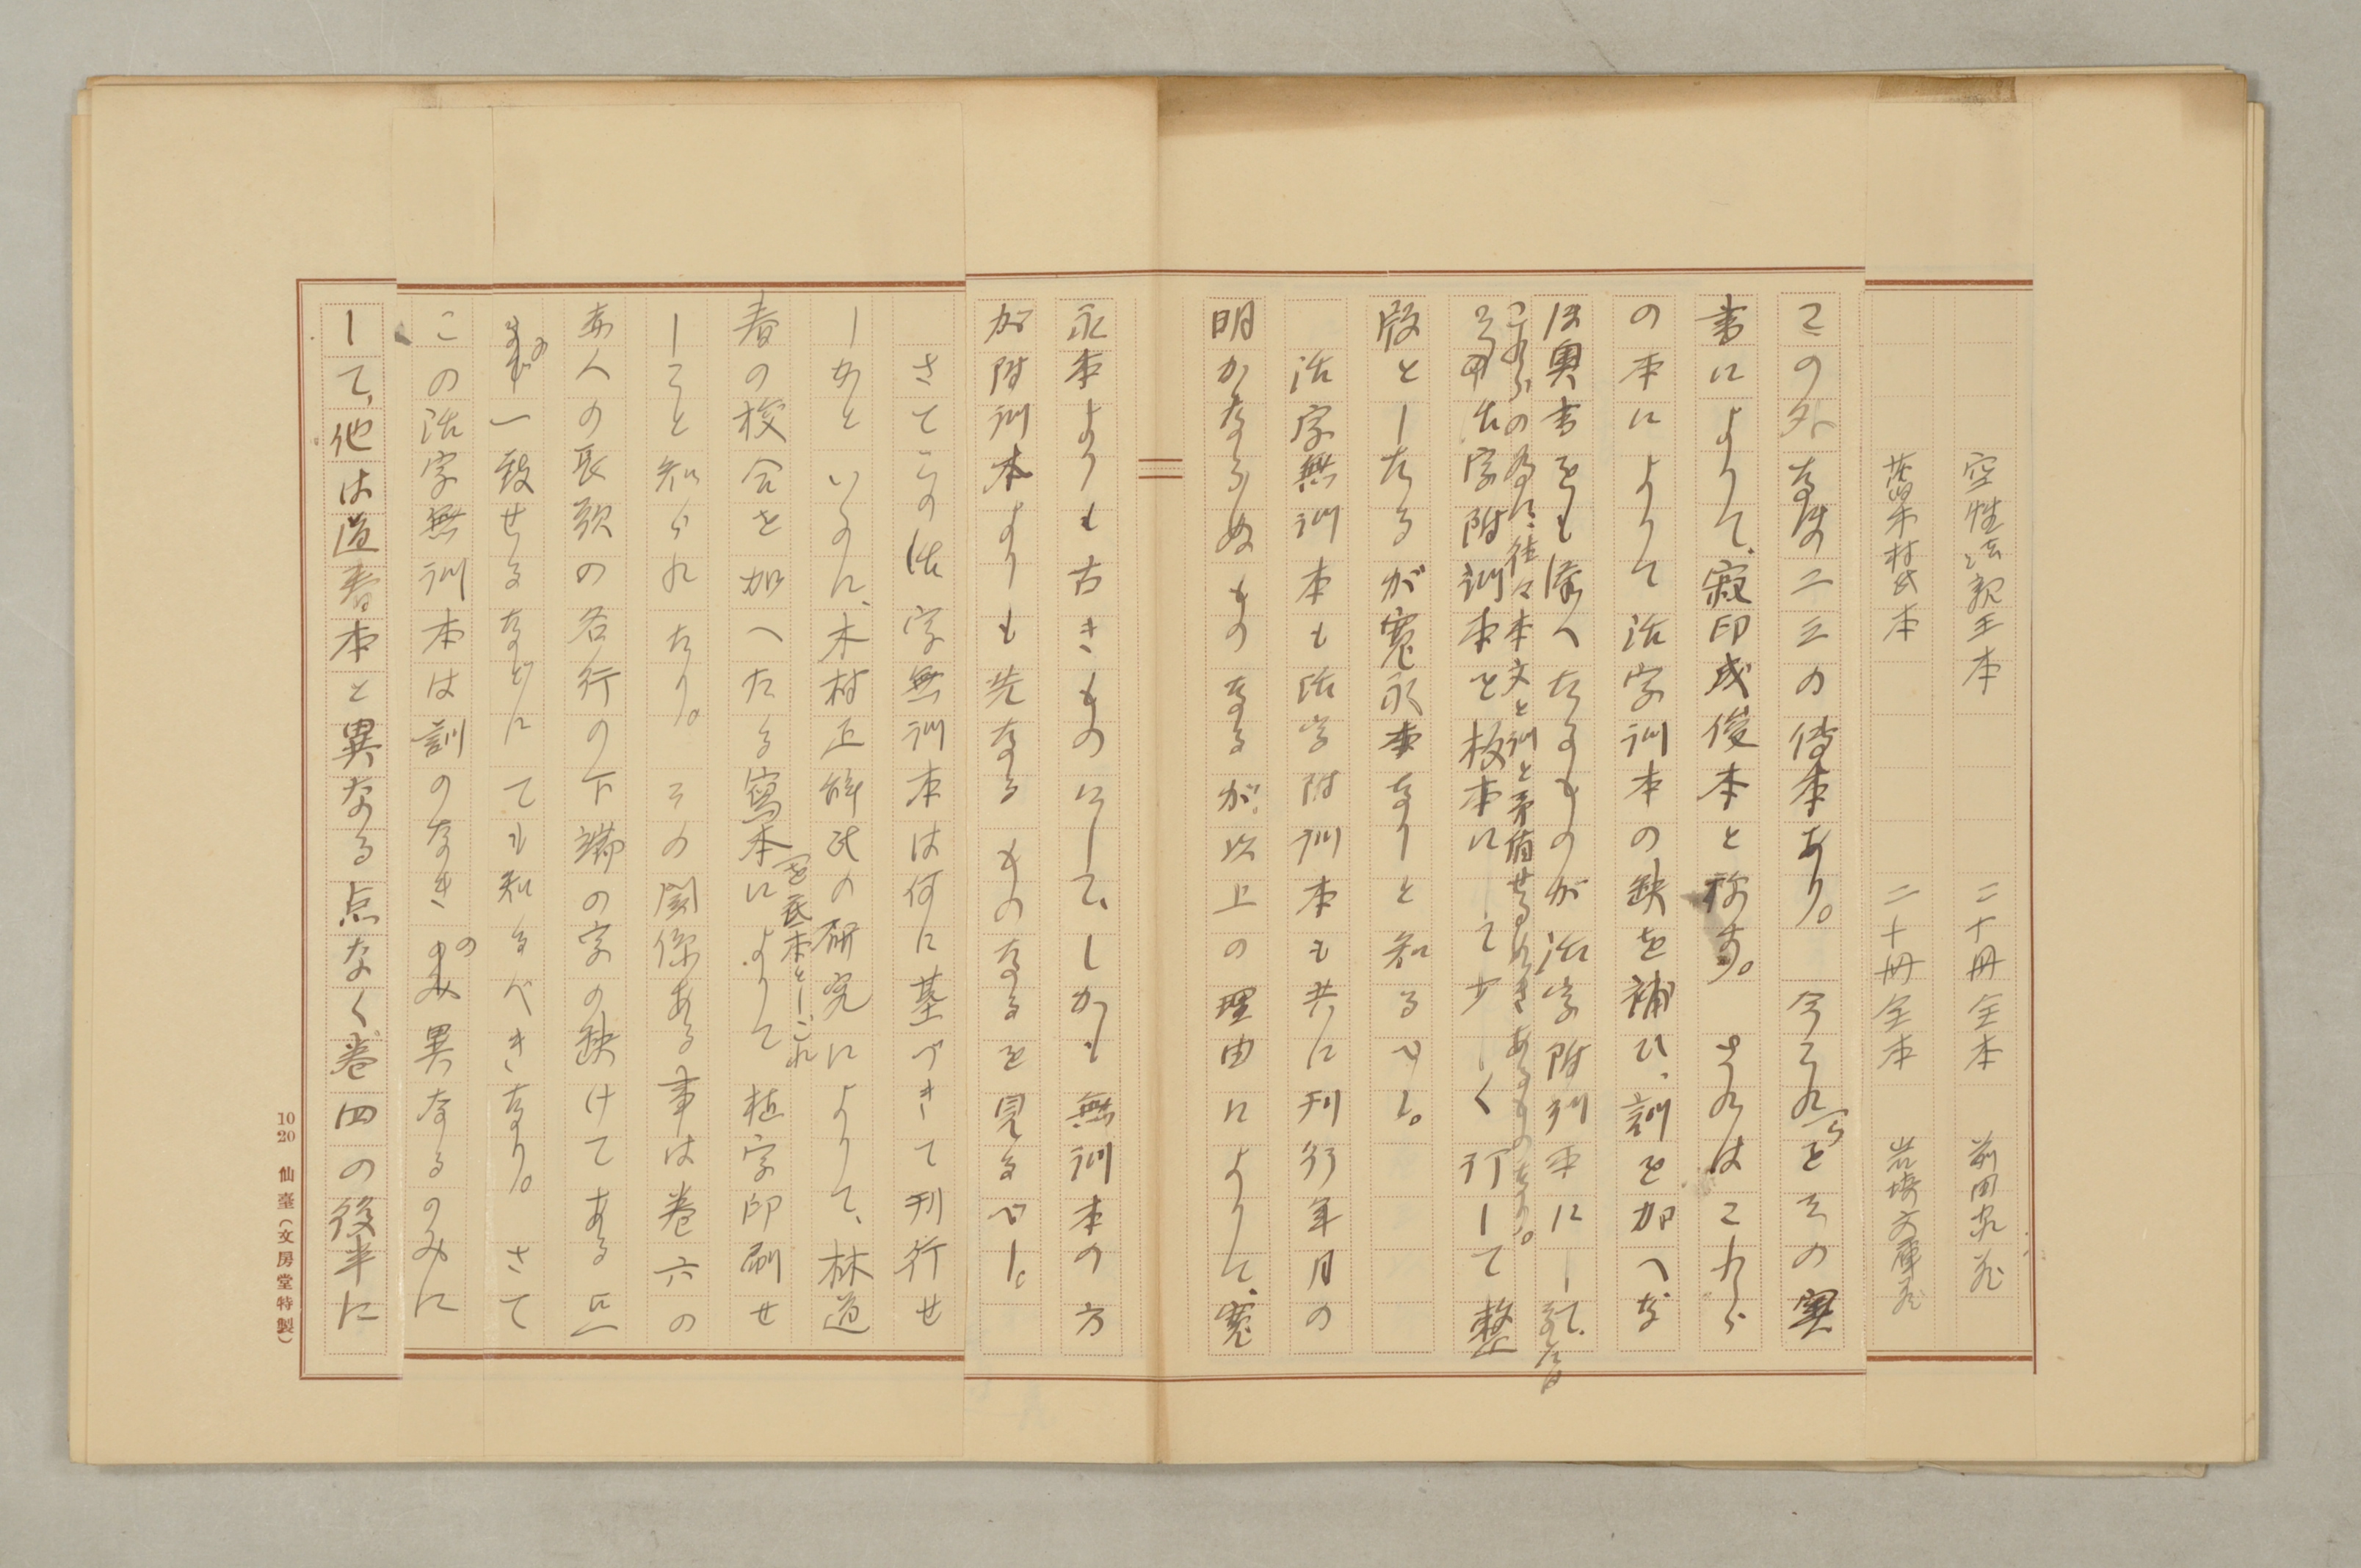 空性法親王本　二十冊全本　前田家蔵
旧木村氏本　二十冊全本　岩崎文庫蔵
この外なほ二三の伝本あり。今これらをその奥
書によりて、寂印成俊本と称す。さればこれら
の本によりて活字訓本の缺を補ひ、訓を加へな
ほ奥書をも添へたるものが活字附訓本にして、
これらの為に、往々本文と訓と矛盾せる如きあるものなり。
その活字附訓本を板本にして少しく訂して整
版としたるが寛永本なりと知るべし。
活字無訓本も活字附訓本も共に刊行年月の
明かならぬものなるが、以上の理由によりて、寛
永本よりも古きものにして、しかも無訓本の方
が附訓本よりも先なるものなるを見るべし。
さてこの活字無訓本は何に基づきて刊行せ
しかといふに、木村正辞氏の研究によりて、林道
春の校合を加へたる寫本によりて植字印刷せ
しこと知られたり。その関係ある事は巻六の
赤人の長歌の各行の下端の字の缺けてある
一致せるなどにても知るべきなり。さて
この活字無訓本は訓のなきのみ異なるのみに
して、他は道春本と異なる点なく、巻四の後半に
10 20 仙臺(文房堂特製)